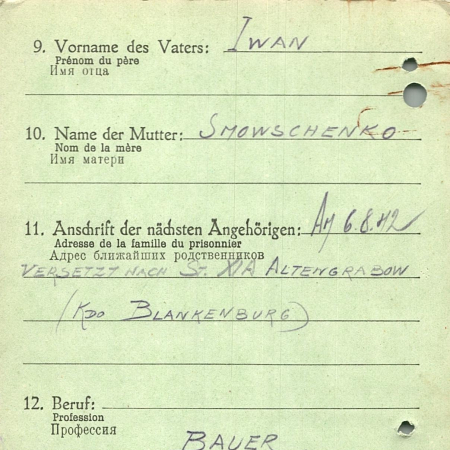 9. Vorname des Vaters: IWAN
Prénom du père
Имя отца
10. Name der Mutter: SMOWSCHENKO
Nom de la mère
Имя матери
11. Anschrift der nächsten Angehörigen: Am 6.8.42
Adresse de la famille du prisonnier
Адрес ближайших родственников
VERSETZT NACH ST. XIA ALTENGRABOW
(KDO BLANKENBURG)
12. Beruf:
Profession
Профессия
BAUER